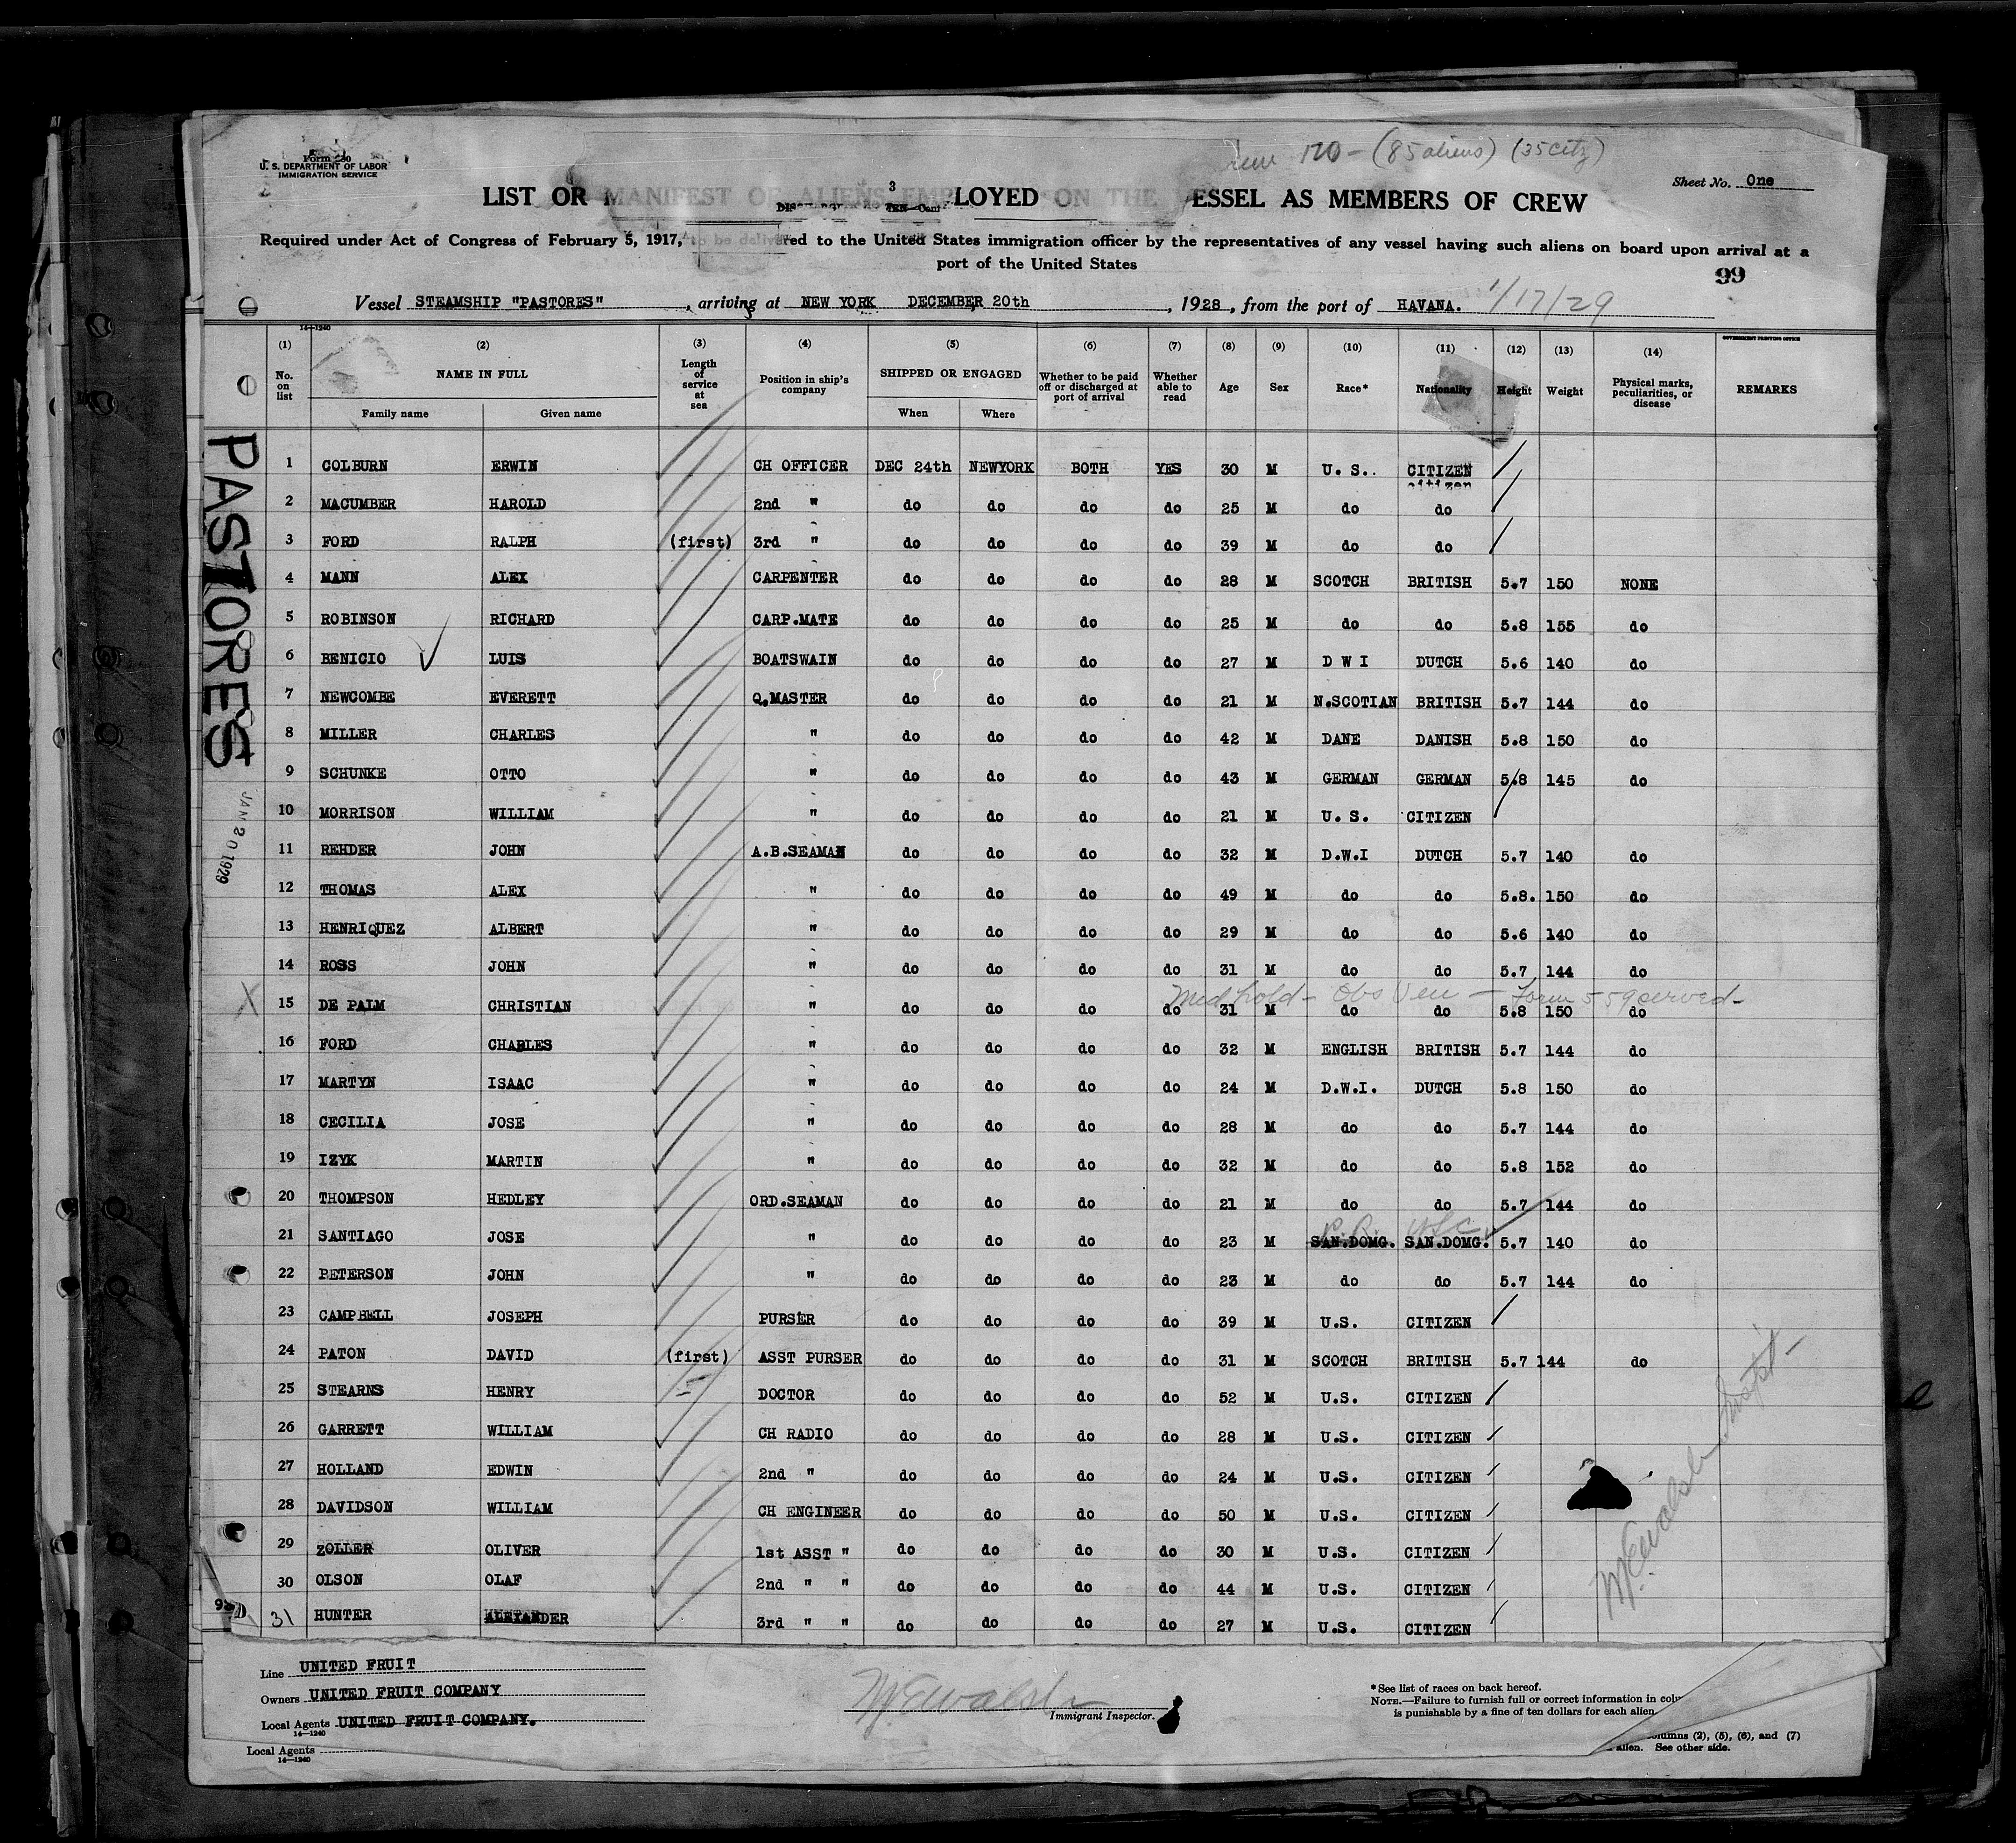 Form 680
U. S. DEPARTMENT OF LABOR
IMMIGRATION SERVICE
120 - (85 aliens) (35 citz)
Sheet No. One
3
LIST OR MANIFEST OF ALIENS EMPLOYED ON THE VESSEL AS MEMBERS OF CREW
Required under Act of Congress of February 5, 1917, to be delivered to the United States immigration officer by the representatives of any vessel having such aliens on board upon arrival at a
port of the United States
99
Vessel STEAMSHIP "PASTORES", arriving at NEW YORK DECEMBER 20th, 1928, from the port of HAVANA. 1/17/29
14-1240
GOVERNMENT PRINTING OFFICE
(1) (2) (3) (4) (5) (6) (7) (8) (9) (10) (11) (12) (13) (14)
No. on list NAME IN FULL Length of service at sea Position in ship's company SHIPPED OR ENGAGED Whether to be paid off or discharged at port of arrival Whether able to read Age Sex Race* Nationality Height Weight Physical marks, peculiarities, or disease REMARKS
Family name Given name When Where
PASTORES
JAN 20 1929
1 COLBURN ERWIN CH OFFICER DEC 24th NEWYORK BOTH YES 30 M U. S.. CITIZEN
citizen
2 MACUMBER HAROLD 2nd " do do do do 25 M do do
3 FORD RALPH (first) 3rd " do do do do 39 M do do
4 MANN ALEX CARPENTER do do do do 28 M SCOTCH BRITISH 5.7 150 NONE
5 ROBINSON RICHARD CARP.MATE do do do do 25 M do do 5.8 155 do
6 BENICIO LUIS BOATSWAIN do do do do 27 M D W I DUTCH 5.6 140 do
7 NEWCOMBE EVERETT Q.MASTER do do do do 21 M N.SCOTIAN BRITISH 5.7 144 do
8 MILLER CHARLES " do do do do 42 M DANE DANISH 5.8 150 do
9 SCHUNKE OTTO " do do do do 43 M GERMAN GERMAN 5.8 145 do
10 MORRISON WILLIAM " do do do do 21 M U. S. CITIZEN
11 REHDER JOHN A.B.SEAMAN do do do do 32 M D.W.I DUTCH 5.7 140 do
12 THOMAS ALEX " do do do do 49 M do do 5.8. 150 do
13 HENRIQUEZ ALBERT " do do do do 29 M do do 5.6 140 do
14 ROSS JOHN " do do do do 31 M do do 5.7 144 do
Med hold - Obs Ven - Form 559 served -
X 15 DE PALM CHRISTIAN " do do do do 31 M do do 5.8 150 do
16 FORD CHARLES " do do do do 32 M ENGLISH BRITISH 5.7 144 do
17 MARTYN ISAAC " do do do do 24 M D.W.I. DUTCH 5.8 150 do
18 CECILIA JOSE " do do do do 28 M do do 5.7 144 do
19 IZYK MARTIN " do do do do 32 M do do 5.8 152 do
20 THOMPSON HEDLEY ORD.SEAMAN do do do do 21 M do do 5.7 144 do
P.R. USC
21 SANTIAGO JOSE " do do do do 23 M SAN.DOMG. SAN.DOMG. 5.7 140 do
22 PETERSON JOHN " do do do do 23 M do do 5.7 144 do
23 CAMPBELL JOSEPH PURSER do do do do 39 M U.S. CITIZEN
24 PATON DAVID (first) ASST PURSER do do do do 31 M SCOTCH BRITISH 5.7 144 do
25 STEARNS HENRY DOCTOR do do do do 52 M U.S. CITIZEN
26 GARRETT WILLIAM CH RADIO do do do do 28 M U.S. CITIZEN
27 HOLLAND EDWIN 2nd " do do do do 24 M U.S. CITIZEN
28 DAVIDSON WILLIAM CH ENGINEER do do do do 50 M U.S. CITIZEN
29 ZOLLER OLIVER 1st ASST " do do do do 30 M U.S. CITIZEN
30 OLSON OLAF 2nd " " do do do do 44 M U.S. CITIZEN
31 HUNTER ALEXANDER 3rd " " do do do do 27 M U.S. CITIZEN
Line UNITED FRUIT
Owners UNITED FRUIT COMPANY
Local Agents UNITED FRUIT COMPANY.
14-1240
Local Agents
14-1240
Immigrant Inspector.
*See list of races on back hereof.
NOTE.—Failure to furnish full or correct information in colu
is punishable by a fine of ten dollars for each alien.
columns (2), (5), (6), and (7)
alien. See other side.